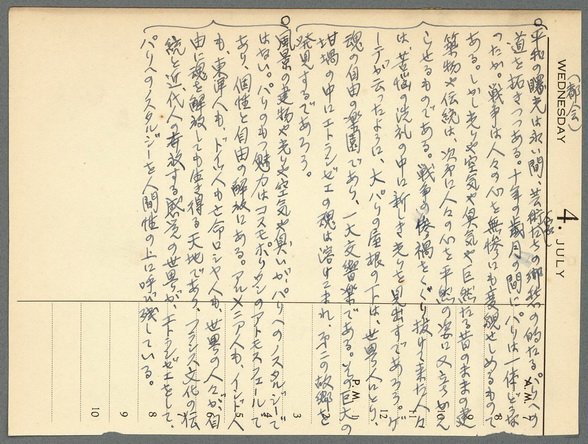 都会
平和の曙光は永い間、芸術家たちの郷愁の的たるパリへの
道を拓きつつある。十年の歳月の間にパリは一体どうな
ったか。戦争は人々の心を無惨にも変貌せしめるもので
ある。しかし光りや空気や臭気や巨然たる昔のままの建
築物や伝統は、次第に人々の心を平然の姿に又立ちかえ
らせるものである。戦争の惨禍をくぐり抜けて来た人々
は、苦悩の洗礼の中に新しき光りを見出すであろう。ゲ
ーテが云ったように、大パリの屋根の下は、世界の人にとり、
魂の自由の楽園であり、一大交響楽である。その巨大の
坩堝の中にエトランゼエの魂は溶けこまれ、第二の故郷を
発見するであろう。
風景の建物や光りや空気や臭いがパリへのノスタルジーで
はない。パリのもつ魅力はコスモポリタンのアトモスフェールで
あり、個性と自由の解放にある。アルメニア人も、インド人
も、東洋人も、ドイツ人も七、ロシヤ人も、世界の人々が自
由に魂を解放しても生き得る天地であり、フランス文化の伝
統と近代人の奔放する感覚の世界が、エトランゼエをして、
パリへのノスタルジーを人間性の上に呼び残している。
WEDNESDAY
4. JULY
A.M.
8
9
10
11
P.M.
1
2
3
4
5
6
7
8
9
10